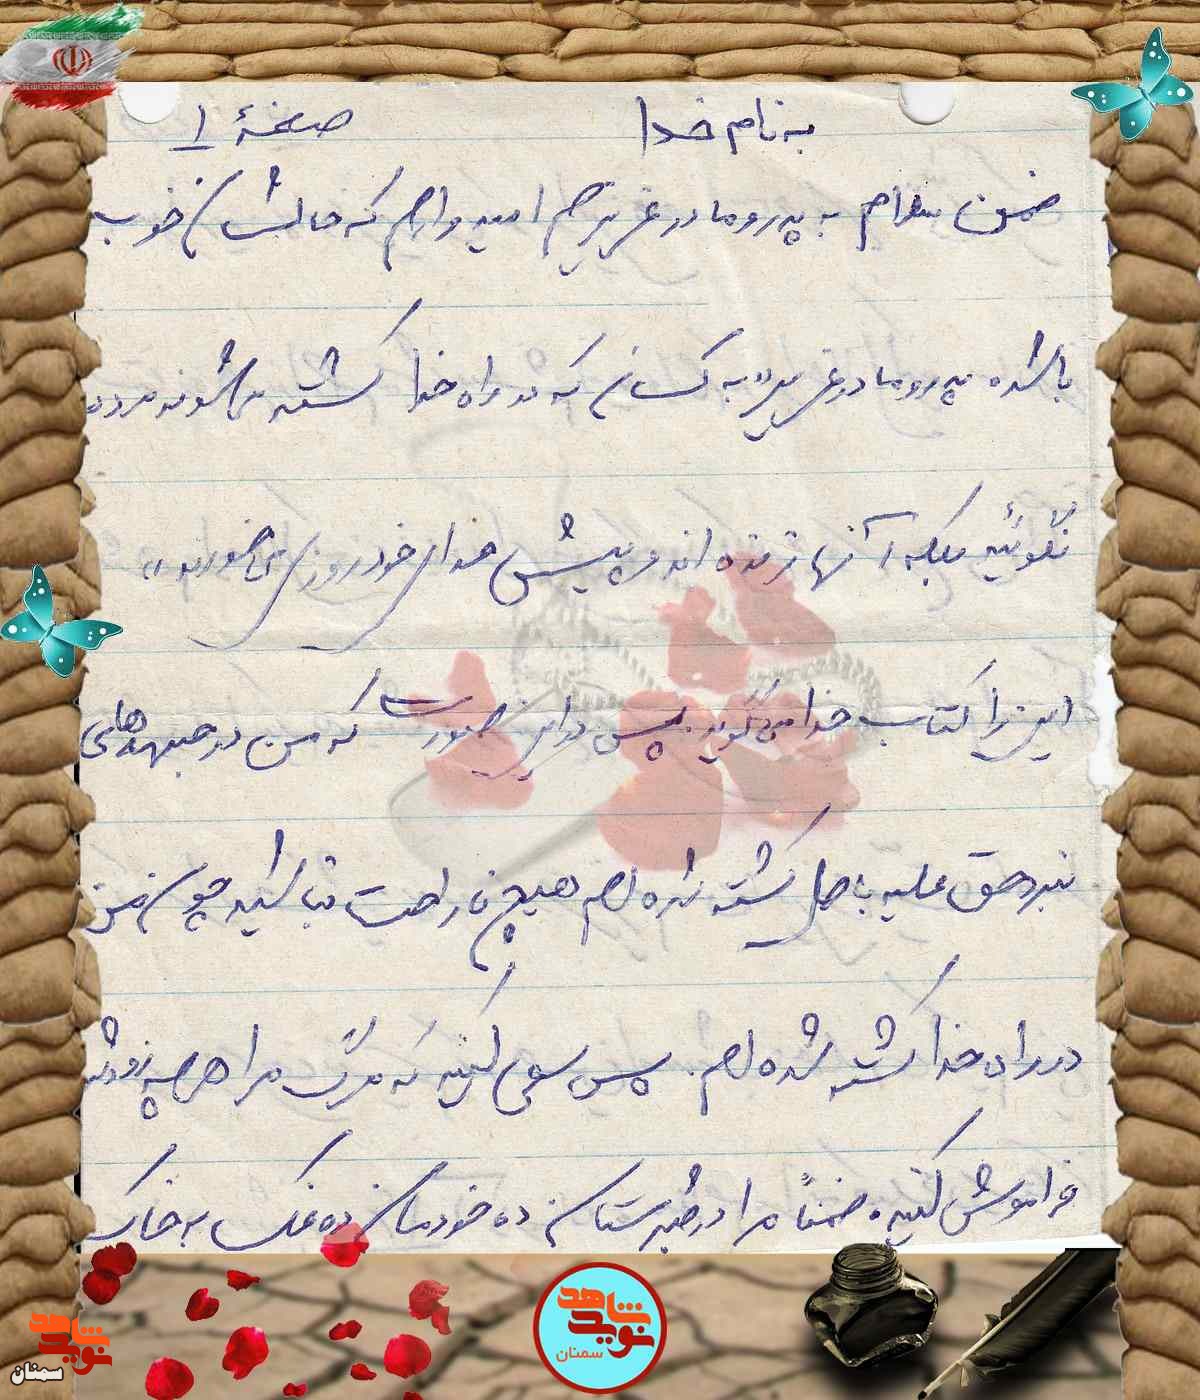 به نام خدا صفحهٔ ۱
ضمن سلام به پدر و مادر عزیزم امیدوارم که حالشان خوب
باشد. پدر و مادر عزیز «به کسانی که در راه خدا کشته می‌شوند مرده
نگوئید بلکه آنها زنده اند و پیش خدای خود روزی می‌خورند»
این را کتاب خدا می‌گوید. پس در این صورت که من در جبهه‌های
نبرد حق علیه باطل کشته شده‌ام هیچ ناراحت نباشید چون من
در راه خدا کشته شده‌ام. پس سعی کنید که مرگ مرا هر چه زودتر
فراموش کنید. ضمناً مرا در قبرستان ده خودمان ده نمک به خاک
شاهد
نوید
سمنان
شاهد
نوید
سمنان